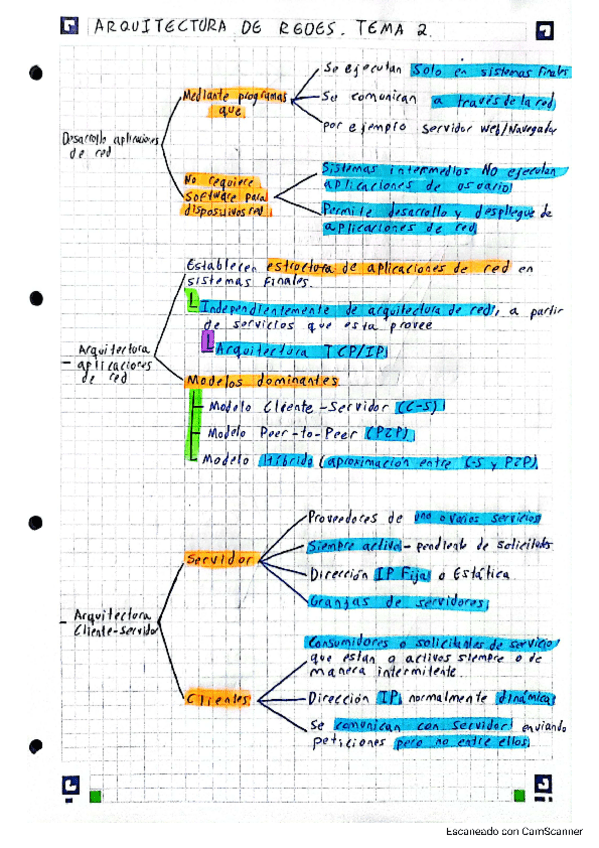 ARQUITECTURA DE REDES. TEMA 2.
Desarrollo aplicaciones
de red
Mediante programas
que
Se ejecutan Solo en sistemas finales
Se comunican a través de la red
por ejemplo servidor web/Navegador
No requiere
software para
dispositivos red
Sistemas intermedios NO ejecutan
aplicaciones de usuario
Permite desarrollo y despliegue de
aplicaciones de red
- Arquitectura
aplicaciones
de red
Establecen estructura de aplicaciones de red en
sistemas finales.
Independientemente de arquitectura de red, a partir
de servicios que esta provee
Arquitectura TCP/IP
Modelos dominantes
Modelo Cliente-Servidor (C-S)
Modelo Peer-to-Peer (P2P)
Modelo Híbrido (aproximación entre C-S y P2P).
- Arquitectura
Cliente-Servidor
Servidor
Proveedores de uno o varios servicios
Siempre activo - pendiente de solicitudes
Dirección IP Fija o Estática.
Granjas de servidores
Clientes
Consumidores o solicitantes de servicio
que están o activos siempre o de
manera intermitente.
Dirección IP normalmente dinámica
Se comunican con servidor enviando
peticiones pero no entre ellos
Escaneado con CamScanner